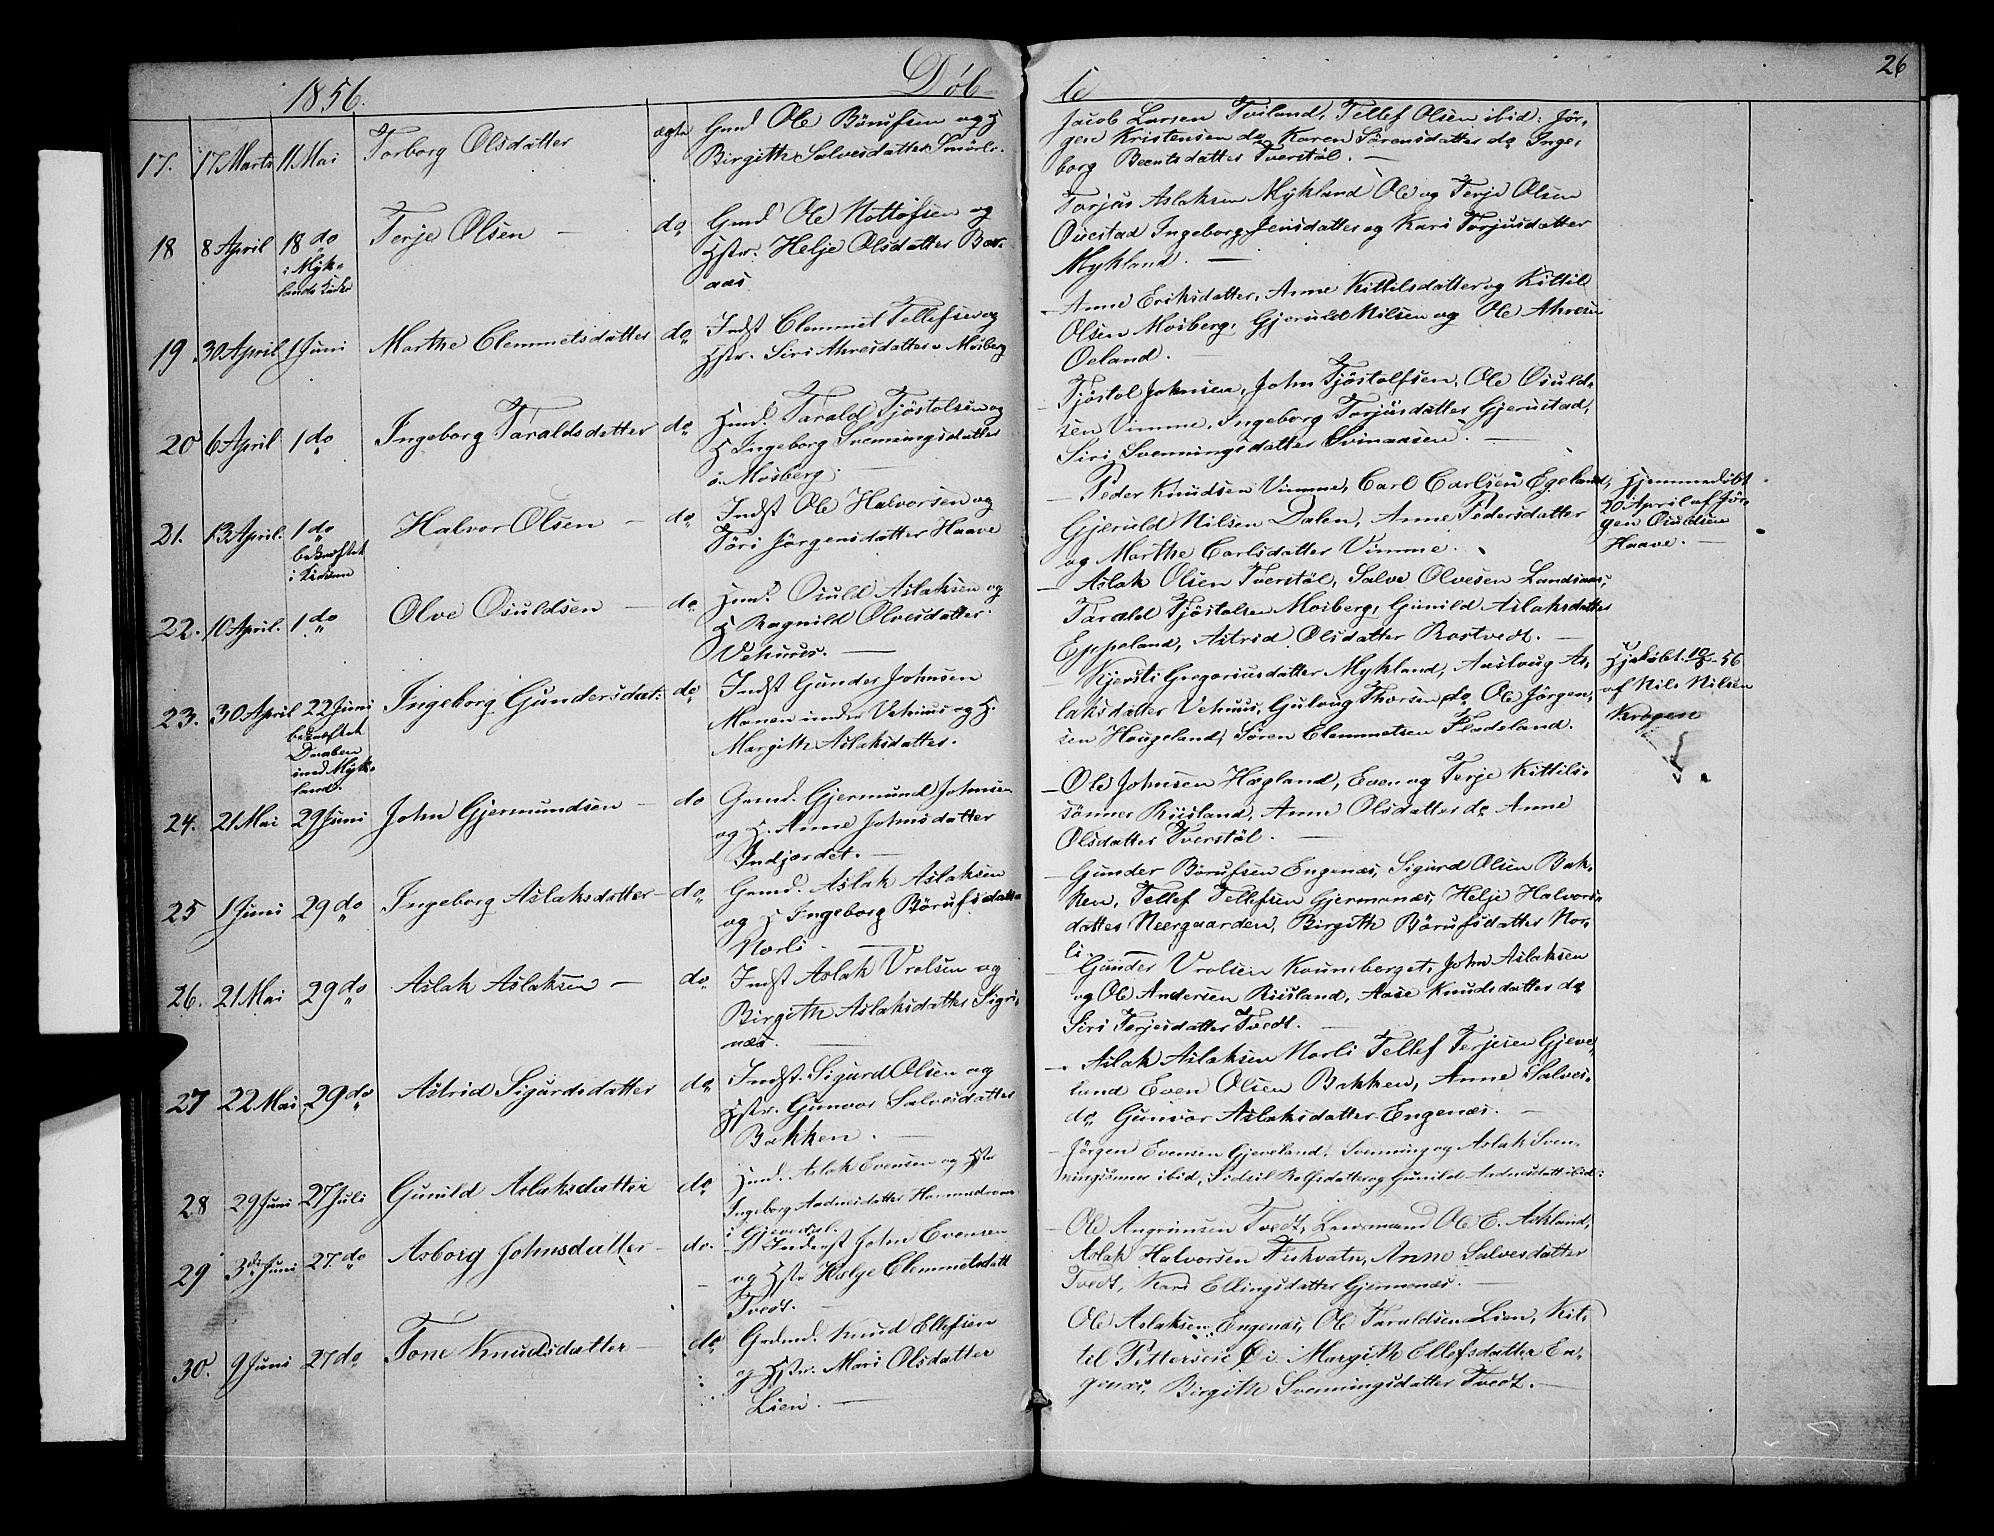 1856.
Døb-
te
26
17. 17 Marts 11 Mai Torborg Olsdatter ægte Gmd Ole Børufsen og H
Birgithe Salvesdatter Smörli.
Jacob Larsen Tveland, Tellef Olsen ibid: Jør-
gen Kristensen do, Karen Sørensdatter do Inge-
borg Berntsdatter Tverstøl. —
18 8 April 18 do Terje Olsen — do Gmd Ole Nottofsen og
i Myk-
lands Kirke
Hstr. Helje Olsdatter Bør-
aas
Torjus Aslaksen Mykland Ole og Terje Olsen
Ouestad Ingeborg Jensdatter og Kari Torjusdatter
Mykland. —
19 30 April 1 Juni Marthe Clemmetsdatter do Indst Clemmet Tellefsen og
Hstr. Siri Ahresdatter Mosberg
Anne Eriksdatter, Anne Kittilsdatter og Kittil
Olsen Mosberg, Gjeruld Nilsen og Ole Ahresen
Oeland.
20 6 April 1 do Ingeborg Taraldsdatter do Hmd. Tarald Tjöstolsen og
H Ingeborg Svenningsdatter
i Mosberg. —
Tjöstol Johnsen, John Tjöstolfsen, Ole Osuld-
sen Vimme, Ingeborg Torjusdatter Gjerustad,
Siri Svenningsdatter Svinaasen. —
21. 13 April. 1 do Halvor Olsen — do Indst Ole Halvorsen og
bekræftet
i Kirken
Töri Jörgensdatter Haave
Peder Knudsen Vimme, Carl Carlsen Egeland,
Gjeruld Nilsen Dalen, Anne Pedersdatter
og Marthe Carlsdatter Vimme.
Hjemmedøbt
20 April af Jör-
gen Osuldsen
Haave. —
22. 10 April. 1 do Olve Osuldsen — do Hmd. Osuld Aslaksen og
H Ragnild Olvesdatter
Vehuus. —
Aslak Olsen Tverstøl, Salve Olvesen Landsaas,
Tarald Tjöstolsen Mosberg, Gunild Aslaksdatter
Eppeland, Astrid Olsdatter Rostvedt. —
23. 30 April 22 Juni Ingeborg Gundersdat: do Indst Gunder Johnsen
bekræftet
Daaben
med Myk-
land.
Monen under Vehuus og H.
Margith Aslaksdatter.
Kjersti Gregoriusdatter Mykland, Aaslaug As-
laksdatter Vehuus, Gulaug Thorsen do Ole Jörgen-
sen Hougeland, Sören Clemmetsen Fladeland.
Hjdöbt. 10/5 - 56
af Nils Nilsen
Krogen
24. 21 Mai 29 Juni John Gjermundsen — do Grmd. Gjermund Johnsen
og H. Anne Johnsdatter
Indjordet. —
Ole Johnsen Hægland, Even og Terje Kittils-
sönner Risland, Anne Olsdatter do Anne
Olsdatter Tverstøl. —
25 1 Juni 29 do Ingeborg Aslaksdatter — do Grmd. Aslak Aslaksen
og H Ingeborg Börufsdatter
Norli —
Gunder Börufsen Engenæs, Sigurd Olsen Bak-
ken, Tellef Tellefsen Gjermonæs, Helje Halvors-
datter Neergaarden, Birgith Börufsdatter Nor-
li. —
26. 21 Mai 29 do Aslak Aslaksen — do. Indst Aslak Vrolsen og
Birgith Aslaksdatter Sigri-
næs. —
Gunder Vrolsen Kouneberget, John Aslaksen
og Ole Andersen Risland, Aase Knudsdatter do
Siri Terjesdatter Tvedt. —
27 22 Mai 29 do Astrid Sigurdsdatter do Indst. Sigurd Olsen og
Hstr. Gunvor Salvesdatter
Bakken. —
Aslak Aslaksen Norli Tellef Terjesen Gjeve-
land Even Olsen Bakken, Anne Salves-
do Gunvor Aslaksdatter Engenæs. —
28 29 Juni 27 Juli Gunild Aslaksdatter do Hmd. Aslak Evensen og Hstr
Ingeborg Andersdatter
Jörgen Evensen Gjeveland, Svenning og Aslak Sven-
ningsönner ibid, Sidsil Rolfsdatter og Gunild Andersdatt ibid:
29 3die Juni 27. do Asborg Johnsdatter — do. Inderst John Evensen
og Hstr Helje Clemmetsdatt
Tvedt. —
Ole Angrimsen Tvedt, Lensmand Ole E. Askland,
Aslak Halvorsen Fiskvatn, Anne Salvesdatter
Tvedt, Kari Ellingsdatter Gjermonæs. —
30. 9 Juni 27 do Tone Knudsdatter — do Grdmd. Knud Ellefsen
og Hstr. Mari Olsdatter
Lien. —
Ole Aslaksen Engenæs, Ole Taraldsen Lien, Kit-
til Pettersen Margith Ellefsdatter En-
genæs, Birgith Svenningsdatter Tvedt. —